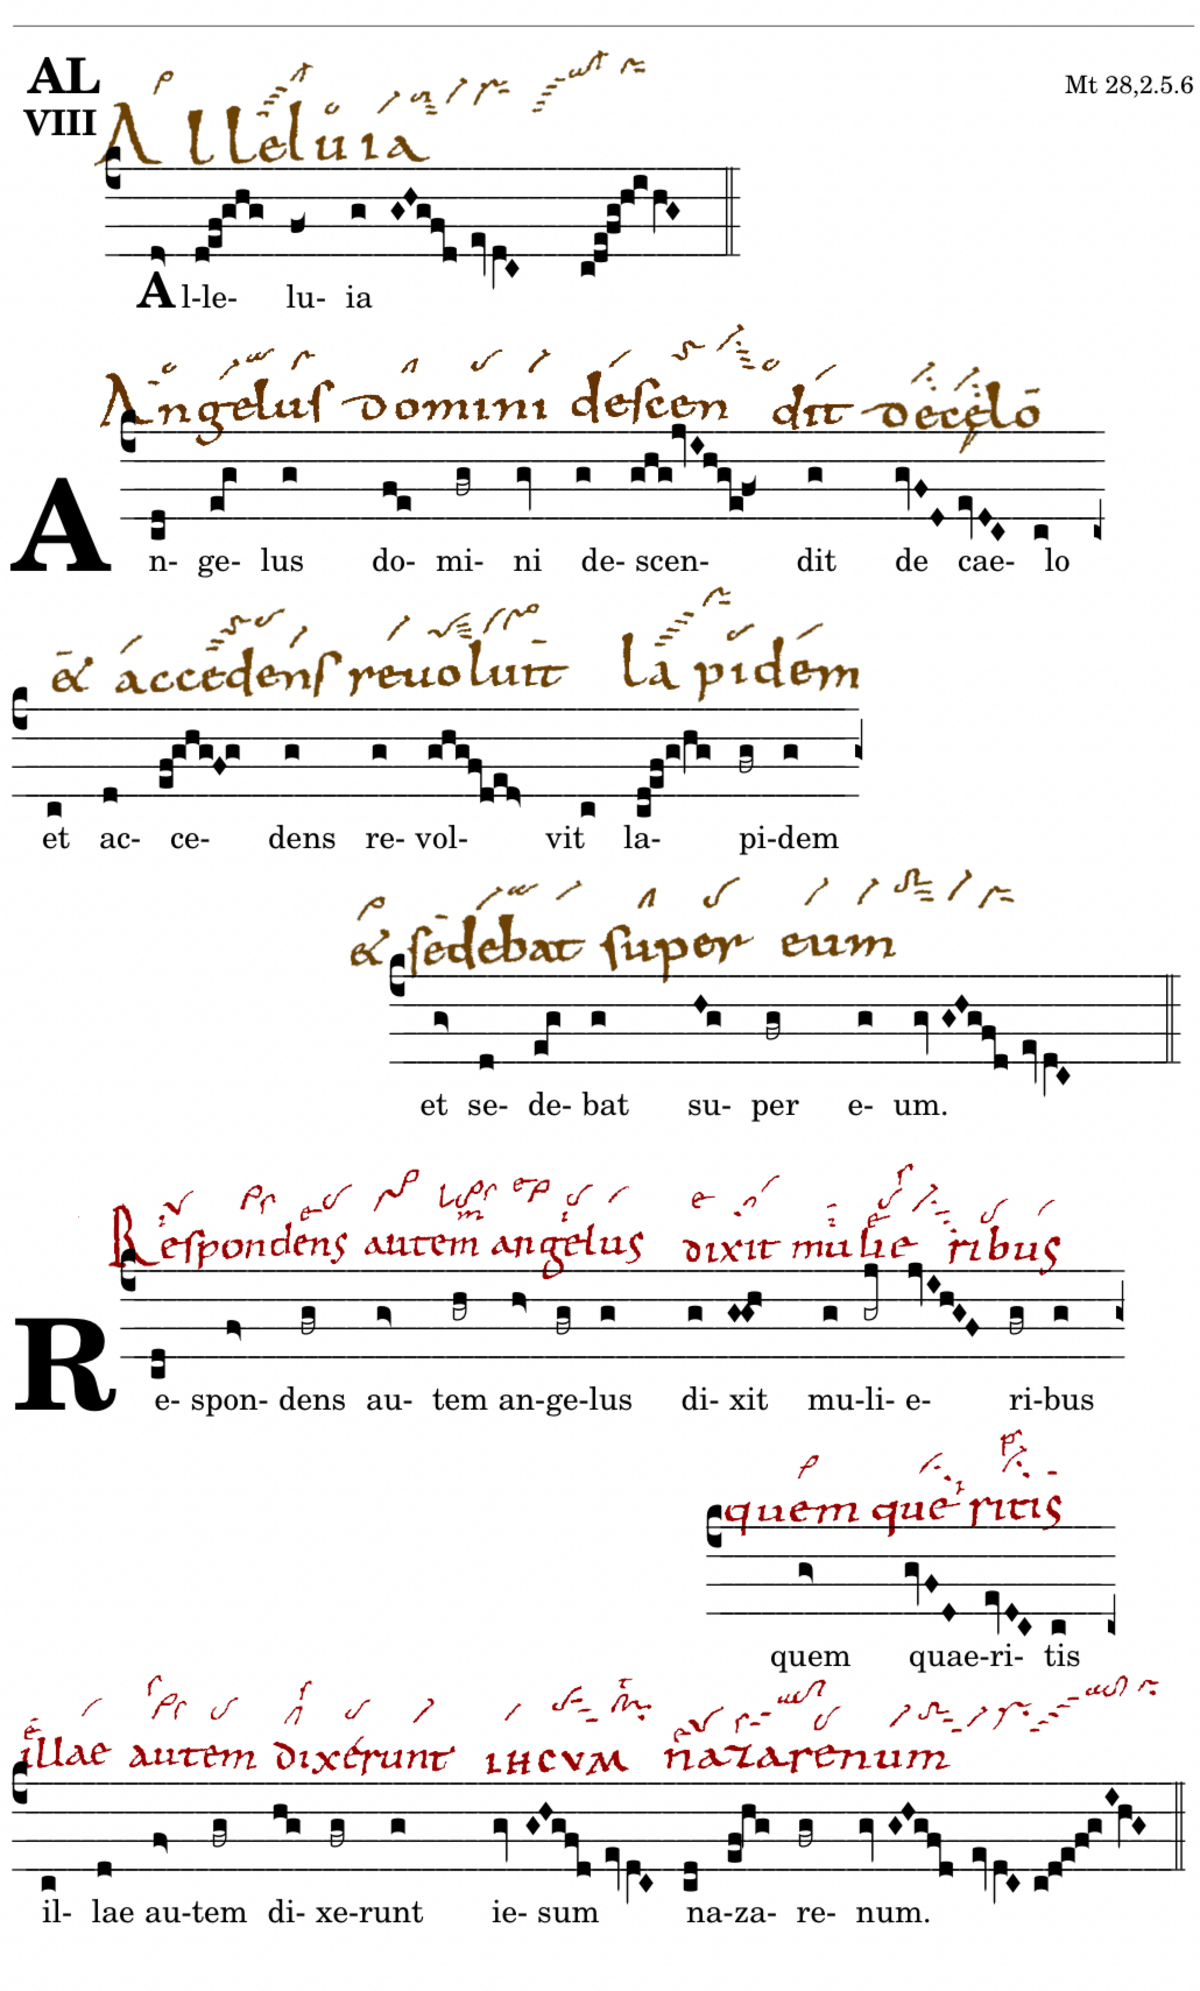 AL
VIII
Mt 28,2.5.6
Alleluia
Al-le- lu- ia
Angelus domini descendit decęlō
An- ge- lus do- mi- ni de- scen- dit de cae- lo
& accedens reuoluit lapidem
et ac- ce- dens re- vol- vit la- pi-dem
& sedebat super eum
et se- de- bat su- per e- um.
Respondens autem angelus dixit mulieribus
Re- spon- dens au- tem an-ge-lus di- xit mu-li- e- ri-bus
quem queritis
quem quae-ri- tis
illae autem dixerunt IHCVM nazarenum
il- lae au-tem di- xe-runt ie- sum na-za- re- num.